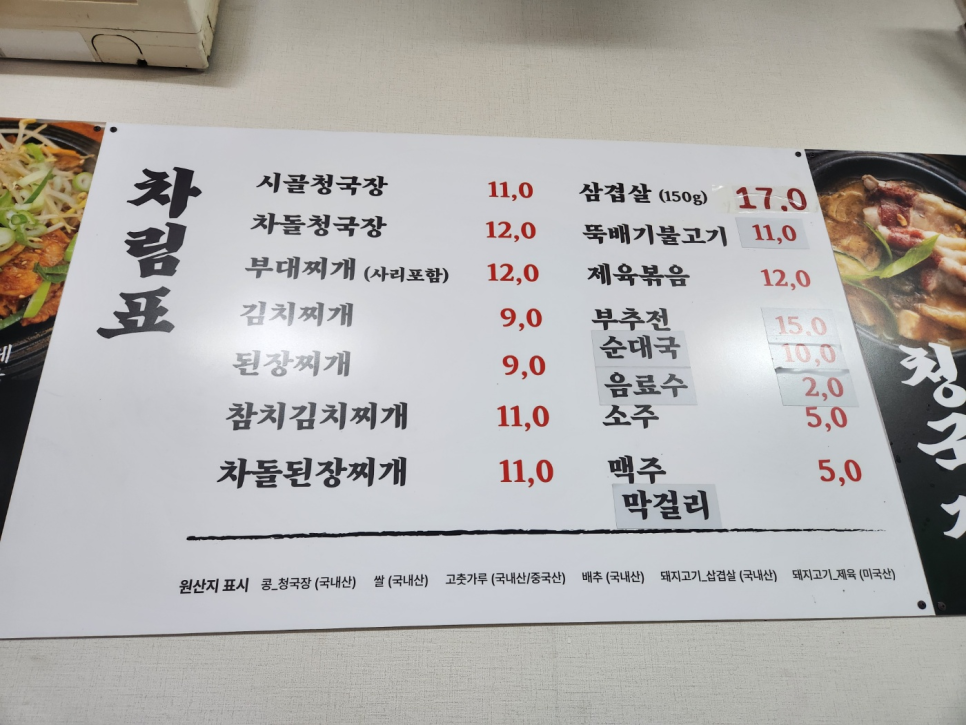 차림표
시골청국장 11,0
차돌청국장 12,0
부대찌개 (사리포함) 12,0
김치찌개 9,0
된장찌개 9,0
참치김치찌개 11,0
차돌된장찌개 11,0
삼겹살 (150g) 17.0
뚝배기불고기 11,0
제육볶음 12,0
부추전 15.0
순대국 10,0
음료수 2,0
소주 5,0
맥주 5,0
막걸리
원산지 표시 콩_청국장 (국내산) 쌀 (국내산) 고춧가루 (국내산/중국산) 배추 (국내산) 돼지고기_삼겹살 (국내산) 돼지고기_제육 (미국산)
청국